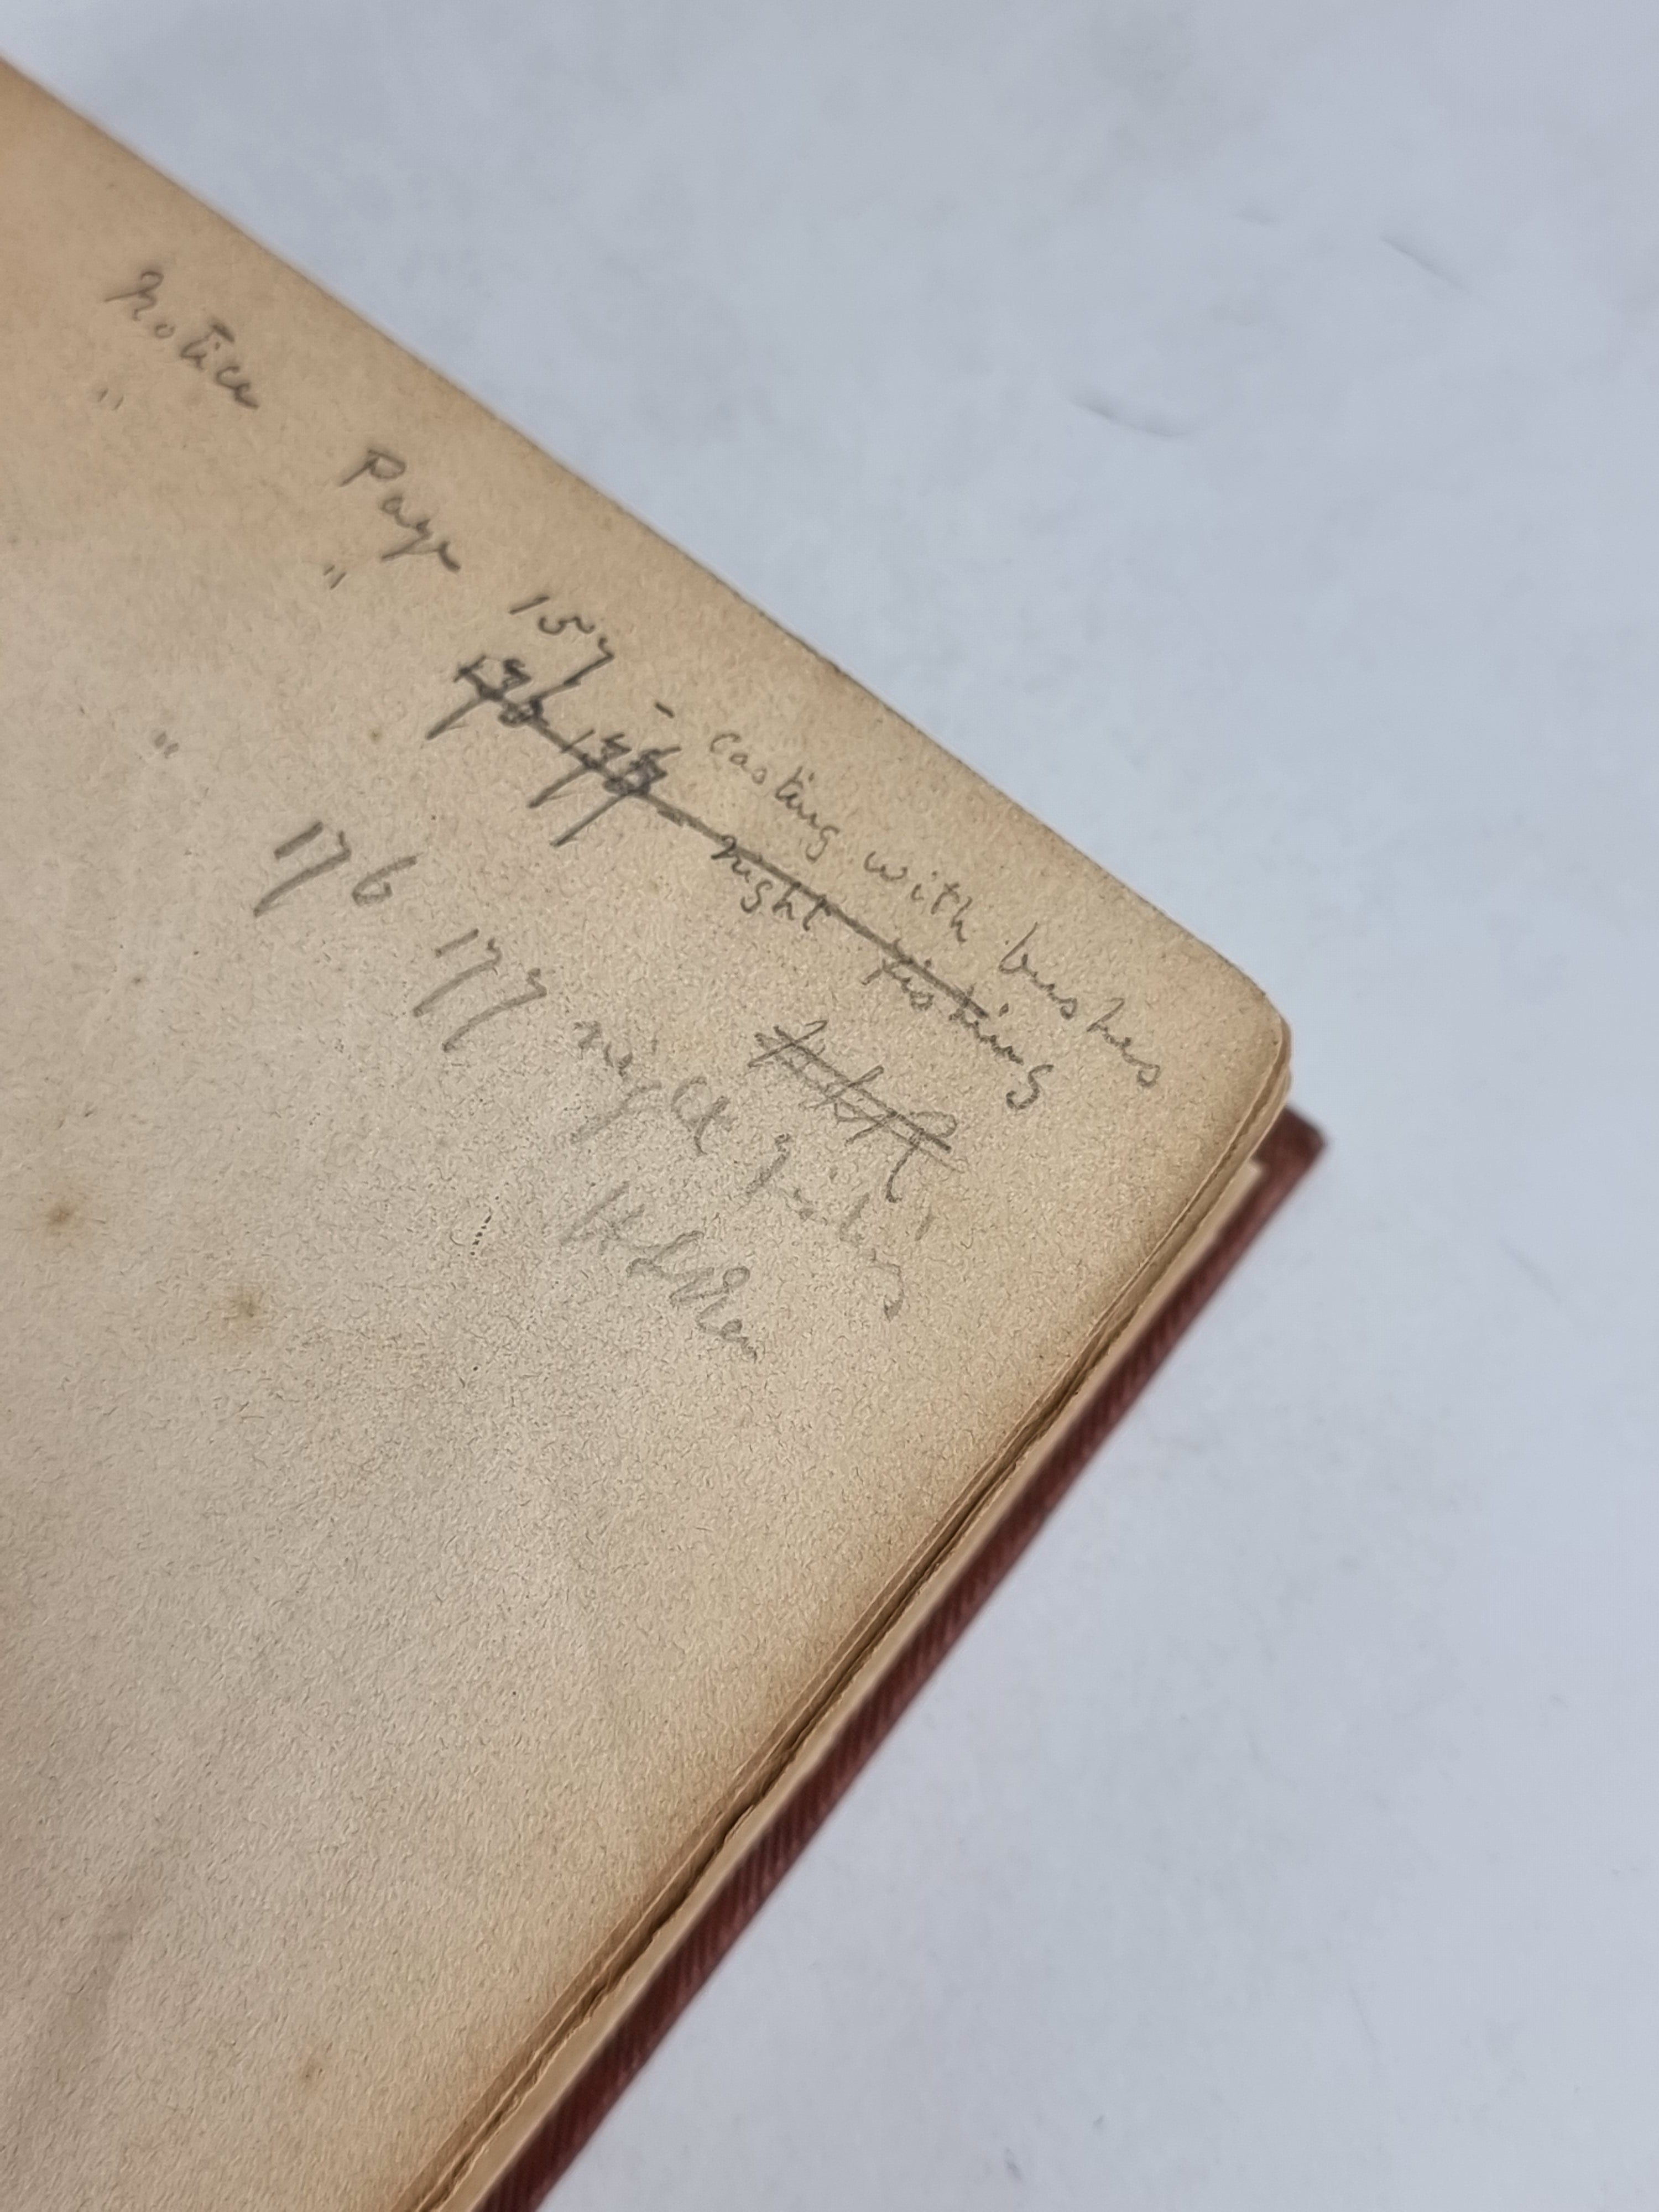 Notice Page 157 - casting with bushes
" " 176 177 - night fishing
" 176 177 night fishing